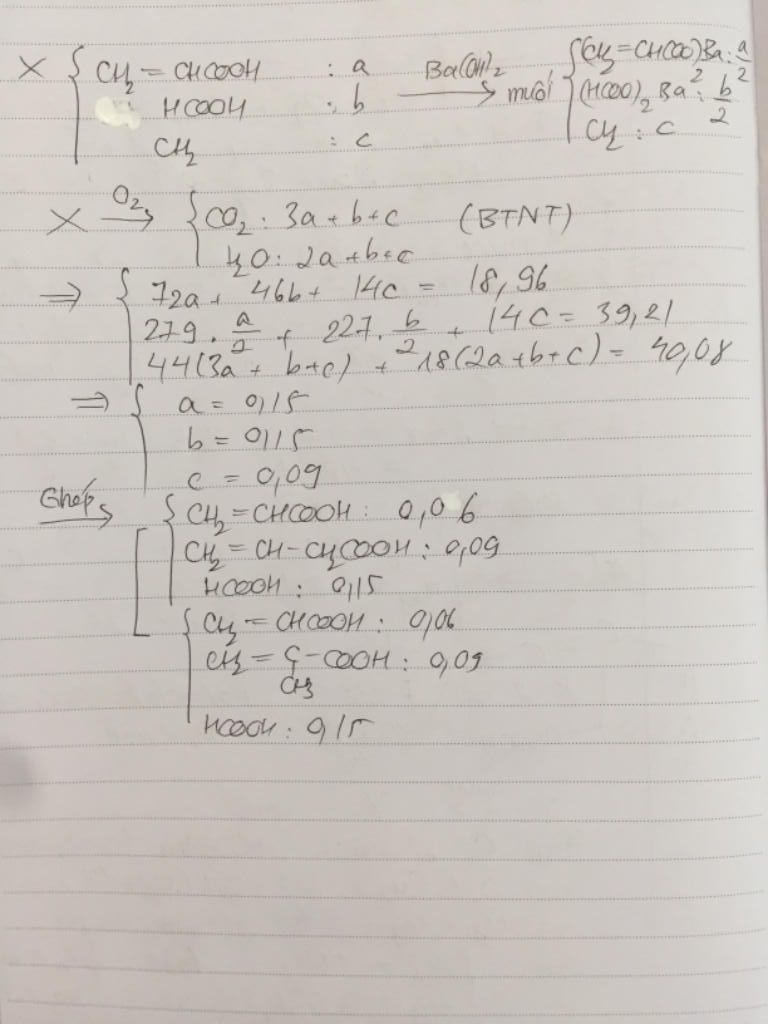 X { CH2 = CHCOOH : a Ba(OH)2 → muối { (CH2=CHCOO)2Ba : a/2
HCOOH : b (HCOO)2Ba : b/2
CH2 : c CH2 : c
X O2 → { CO2 : 3a + b + c (BTNT)
H2O : 2a + b + c
⇒ { 72a + 46b + 14c = 18,96
279 . a/2 + 227 . b/2 + 14c = 39,21
44(3a + b + c) + 18(2a + b + c) = 40,08
⇒ { a = 0,15
b = 0,15
c = 0,09
Ghép → [ { CH2 = CHCOOH : 0,06
CH2 = CH - CH2COOH : 0,09
HCOOH : 0,15
{ CH2 = CHCOOH : 0,06
CH2 = C - COOH : 0,09
CH3
HCOOH : 0,15